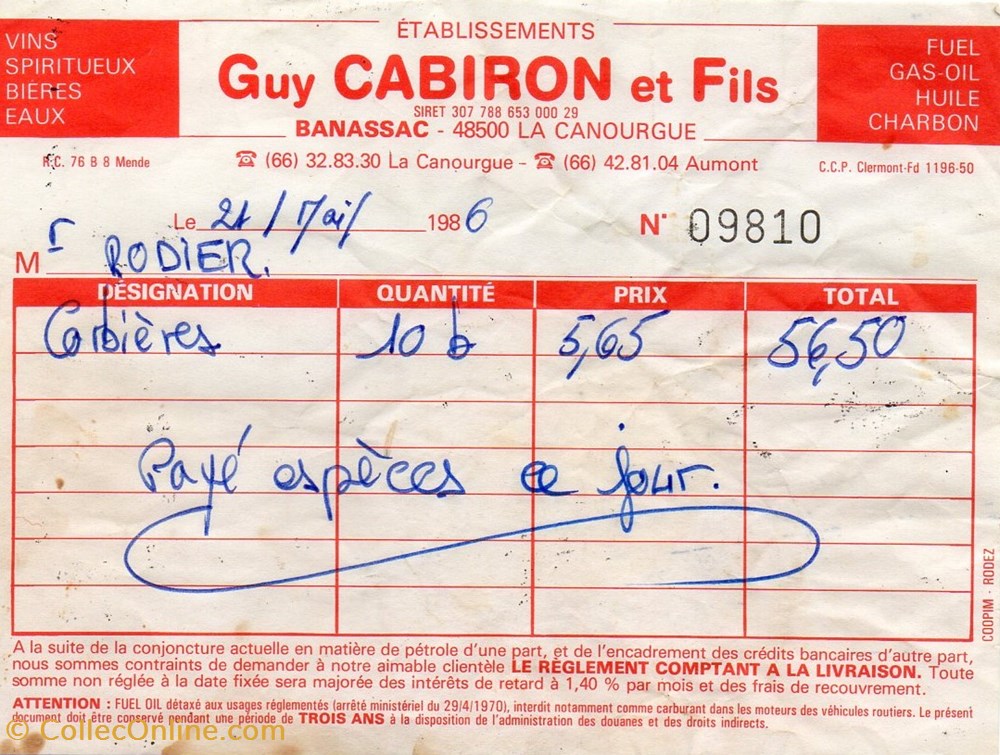 ÉTABLISSEMENTS
VINS
SPIRITUEUX
BIÈRES
EAUX
Guy CABIRON et Fils
FUEL
GAS-OIL
HUILE
CHARBON
SIRET 307 788 653 000 29
BANASSAC - 48500 LA CANOURGUE
R.C. 76 B 8 Mende
☎ (66) 32.83.30 La Canourgue - ☎ (66) 42.81.04 Aumont
C.C.P. Clermont-Fd 1196-50
Le 21 / Mai / 1986 N° 09810
M r RODIER.
DÉSIGNATION QUANTITÉ PRIX TOTAL
Corbières 10 b 5,65 56,50
Payé espèces ce jour.
COOPIM - RODEZ
A la suite de la conjoncture actuelle en matière de pétrole d'une part, et de l'encadrement des crédits bancaires d'autre part,
nous sommes contraints de demander à notre aimable clientèle LE RÈGLEMENT COMPTANT A LA LIVRAISON. Toute
somme non réglée à la date fixée sera majorée des intérêts de retard à 1,40 % par mois et des frais de recouvrement.
ATTENTION : FUEL OIL détaxé aux usages réglementés (arrêté ministériel du 29/4/1970), interdit notamment comme carburant dans les moteurs des véhicules routiers. Le présent
document doit être conservé pendant une période de TROIS ANS à la disposition de l'administration des douanes et des droits indirects.
© CollecOnline.com